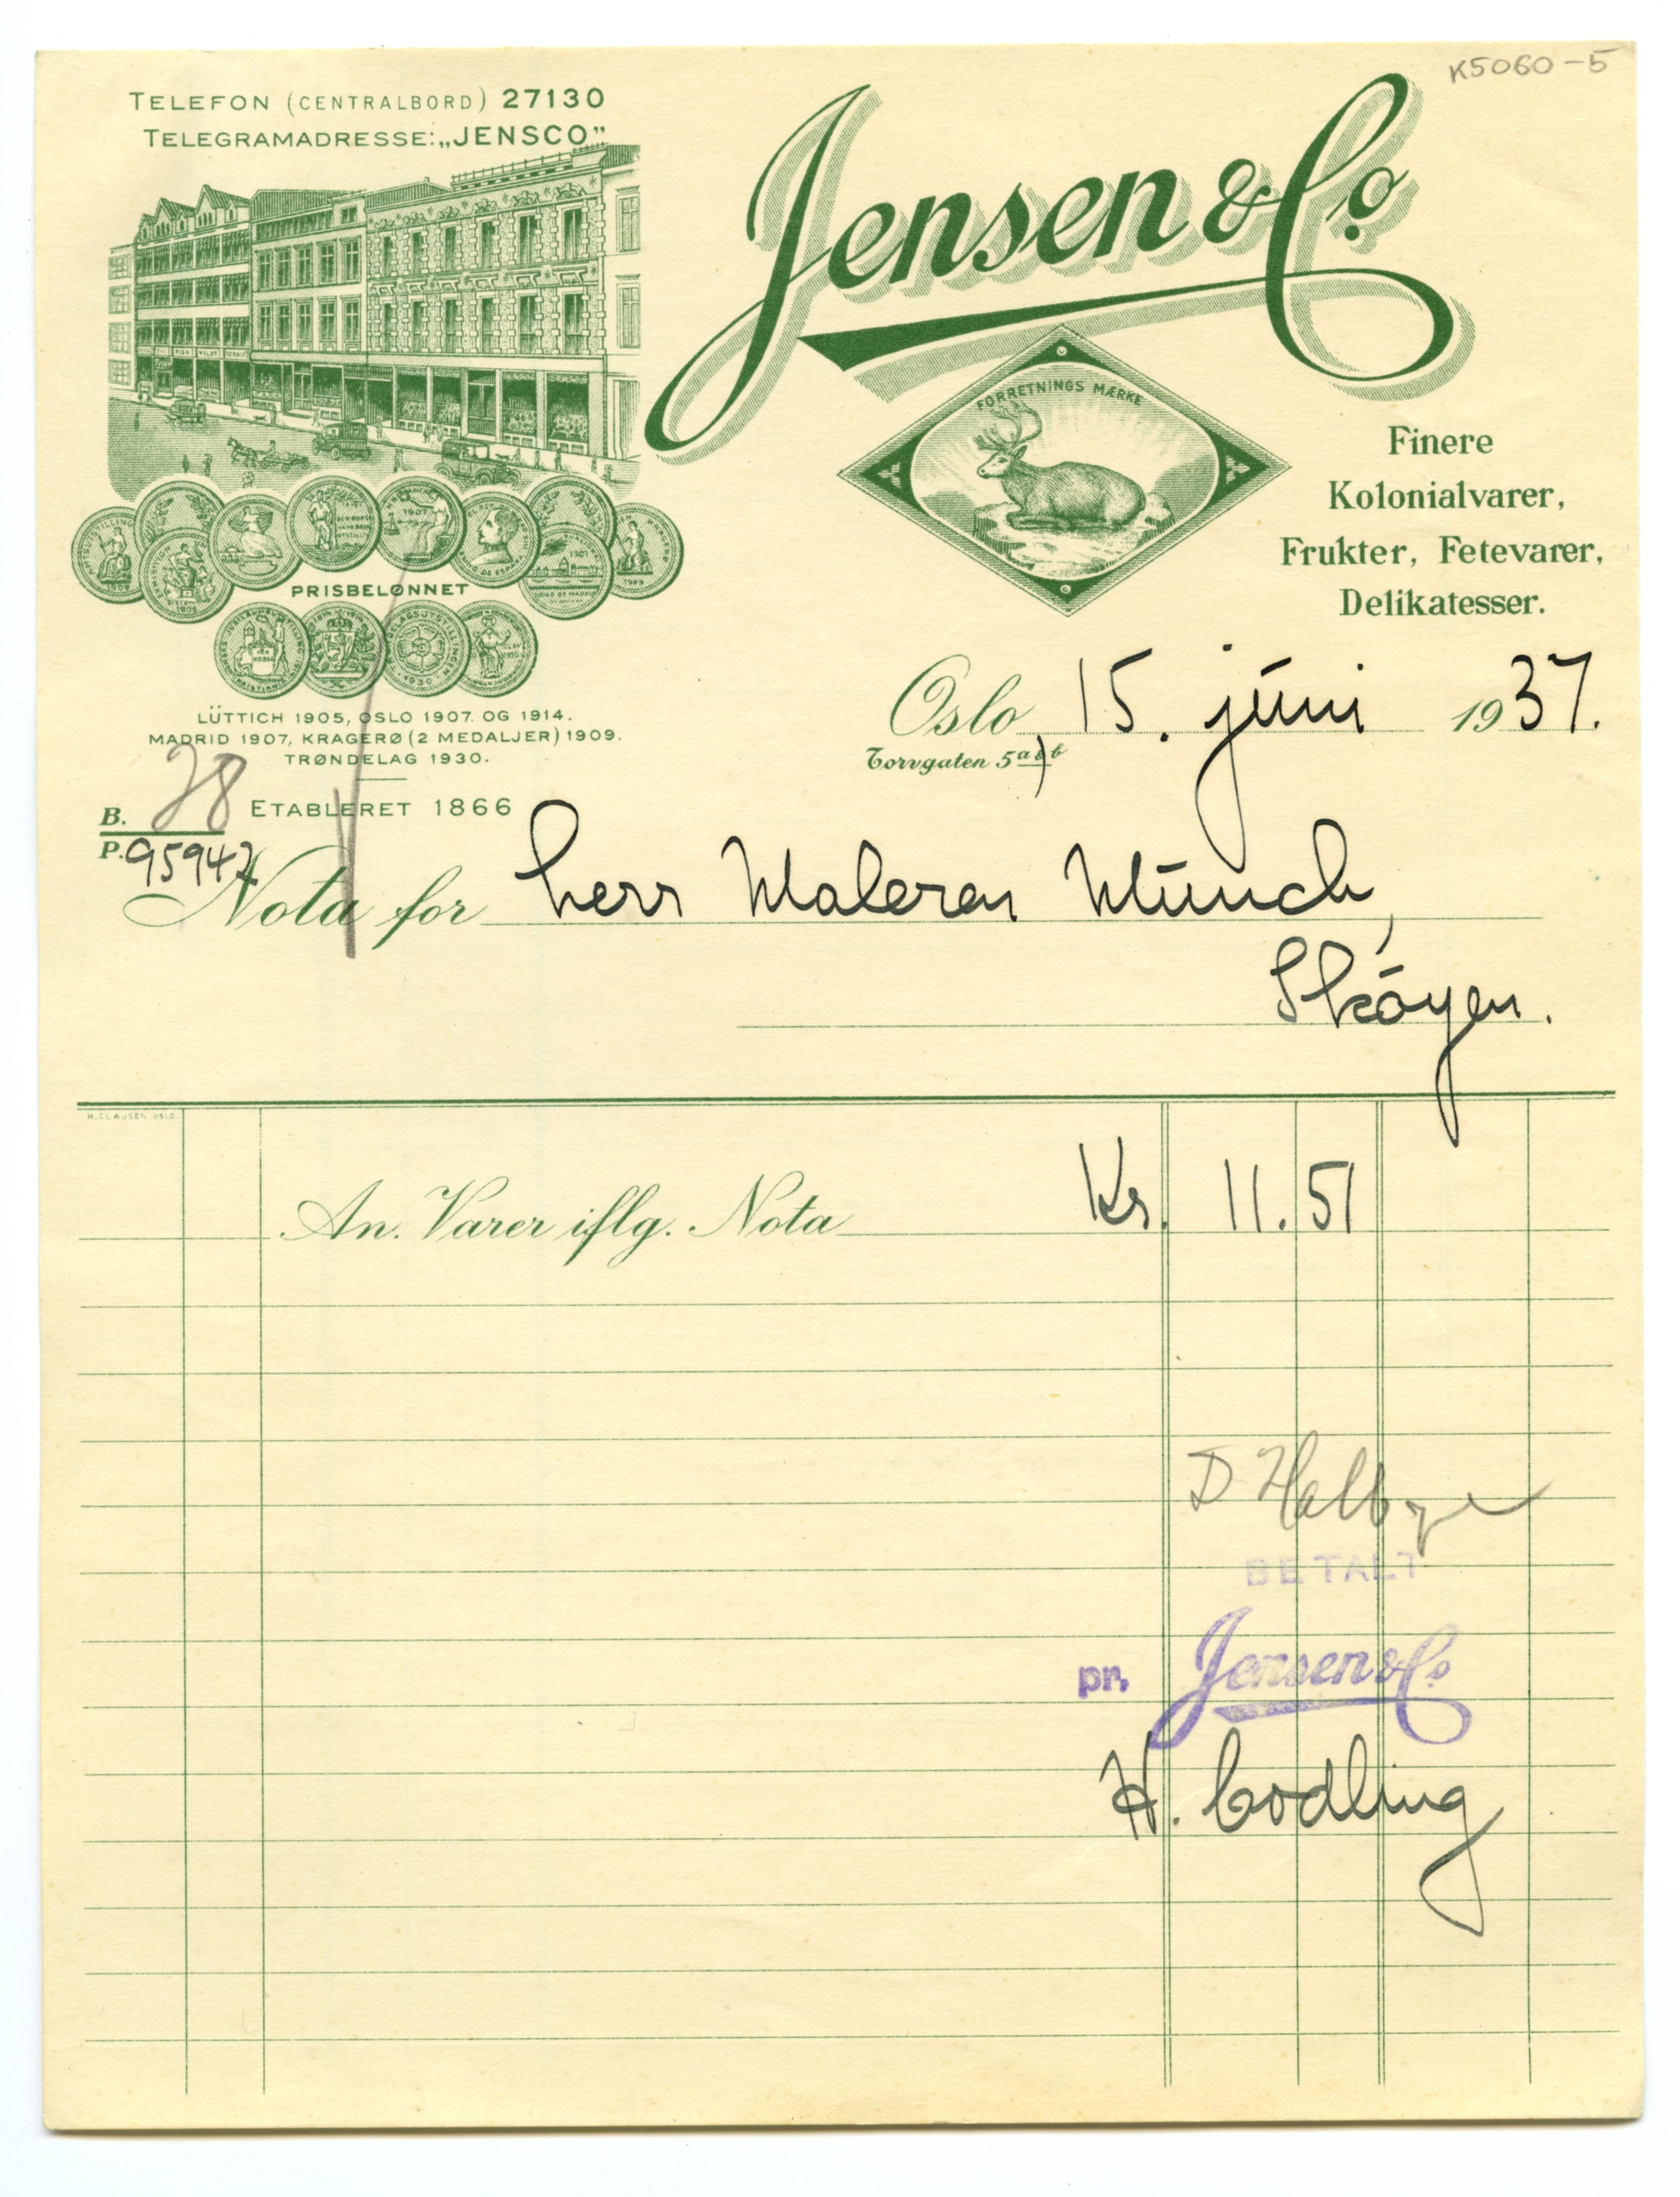 K5060-5
TELEFON (CENTRALBORD) 27130
TELEGRAMADRESSE: „JENSCO”
Jensen & Co
FORRETNINGS MÆRKE
Finere
Kolonialvarer,
Frukter, Fetevarer,
Delikatesser.
PRISBELØNNET
LÜTTICH 1905, OSLO 1907. OG 1914.
MADRID 1907, KRAGERØ (2 MEDALJER) 1909.
TRØNDELAG 1930.
ETABLERET 1866
Oslo, 15. juni 1937.
Torvgaten 5 a & b
B. 28
P. 95947
Nota for herr Maleren Munch,
Skøyen.
H. CLAUSEN OSLO.
An. Varer iflg. Nota Kr. 11.51
D Halbye
BETALT
pr. Jensen & Co
H. Codling